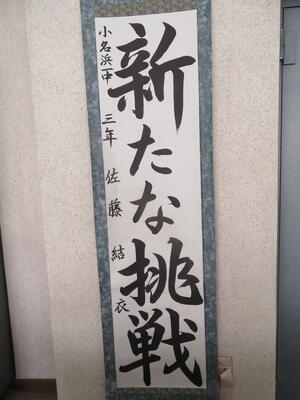 新たな挑戦
小名浜一中 三年 佐藤結衣